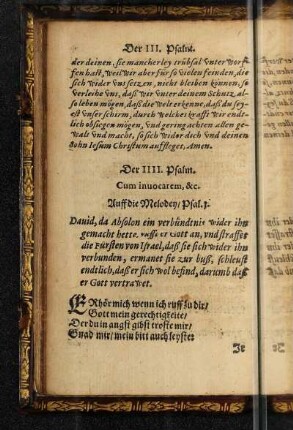 Der III. Psalm.
der deinen, sie mancherley trübsal vnterworf
fen hast, weil wir aber für so vielen feinden, die
sich wider vns setzen, nicht bleiben können, so
verleihe vns, daß wir vnter deinem Schutz, al
so leben mögen, daß die welt erkenne, daß du sey
est vnser schirm, durch welches krafft wir end
lich obsiegen mögen, vnd gering achten allen ge
walt vnd macht, so sich wider dich vnd deinen
Sohn Iesum Christum auffleget, Amen.
Der IIII. Psalm.
Cum inuocarem, &c.
Auff die Melodey/ Psal. j.
Dauid, da Absolon ein verbündtnis wider ihn
gemacht hette, rufft er Gott an, vnd straffet
die Fürsten von Israel, daß sie sich wider ihn
verbunden, ermanet sie zur buß, schleust
endtlich, daß er sich wol befind, darumb daß
er Gott vertrawet.
ERhör mich wenn ich ruff zu dir/
Gott mein gerechtigkeite/
Der du in angst gibst troste mir/
Gnad mir/ mein bitt auch leyste:
Ir